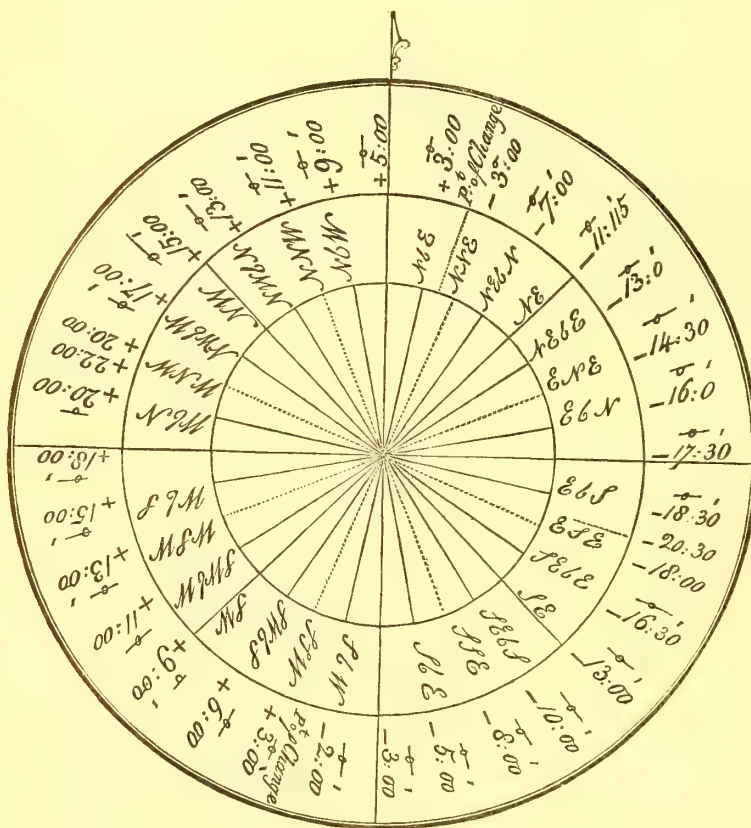 +5:00
+3:00
Pt. of Change
-3:00
-7:00
-11:15
-13:0
-14:30
-16:0
-17:30
-18:30
-20:30
-18:00
-16:30
-13:00
-10:00
-8:00
-5:00
-3:00
-2:00
Pt. of Change
+3:00
+6:00
+9:00
+11:00
+13:00
+15:00
+18:00
+20:00
+22:00
+20:00
+17:00
+15:00
+13:00
+11:00
+6:00
NbE
NNE
NEbN
NE
NEbE
ENE
EbN
EbS
ESE
SEbE
SE
SEbS
SSE
SbE
SbW
SSW
SWbS
SW
SWbW
WSW
WbS
WbN
WNW
NWbW
NW
NWbN
NNW
NbW